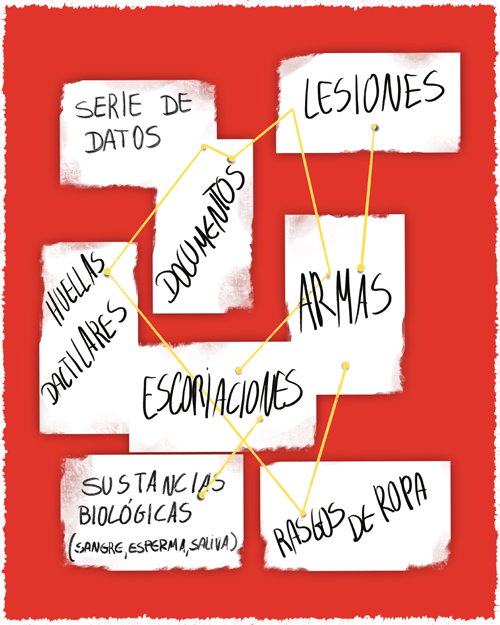 SERIE DE
DATOS
LESIONES
DOCUMENTOS
HUELLAS
DACTILARES
ARMAS
ESCORIACIONES
SUSTANCIAS
BIOLÓGICAS
(SANGRE, ESPERMA, SALIVA)
RASGOS DE ROPA